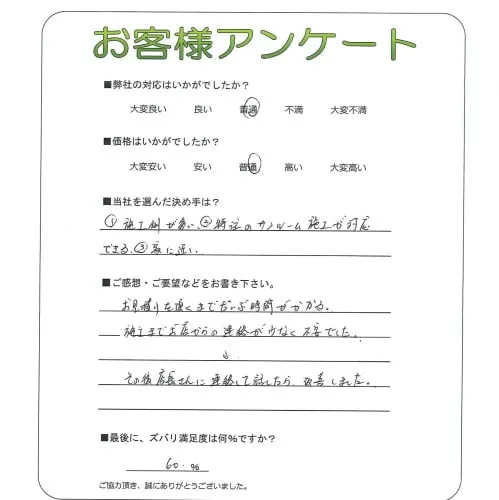 お客様アンケート
■弊社の対応はいかがでしたか？
大変良い 良い 普通 不満 大変不満
■価格はいかがでしたか？
大変安い 安い 普通 高い 大変高い
■当社を選んだ決め手は？
①施工例が多い、②特注のサンルーム施工が対応
できる、③家に近い、
■ご感想・ご要望などをお書き下さい。
お見積りを頂くまでだいぶ時間がかかる。
施工までお店からの連絡が少なく不安でした。
↓
その後店長さんに連絡して話したら、改善しました。
■最後に、ズバリ満足度は何%ですか？
60.%
ご協力頂き、誠にありがとうございました。